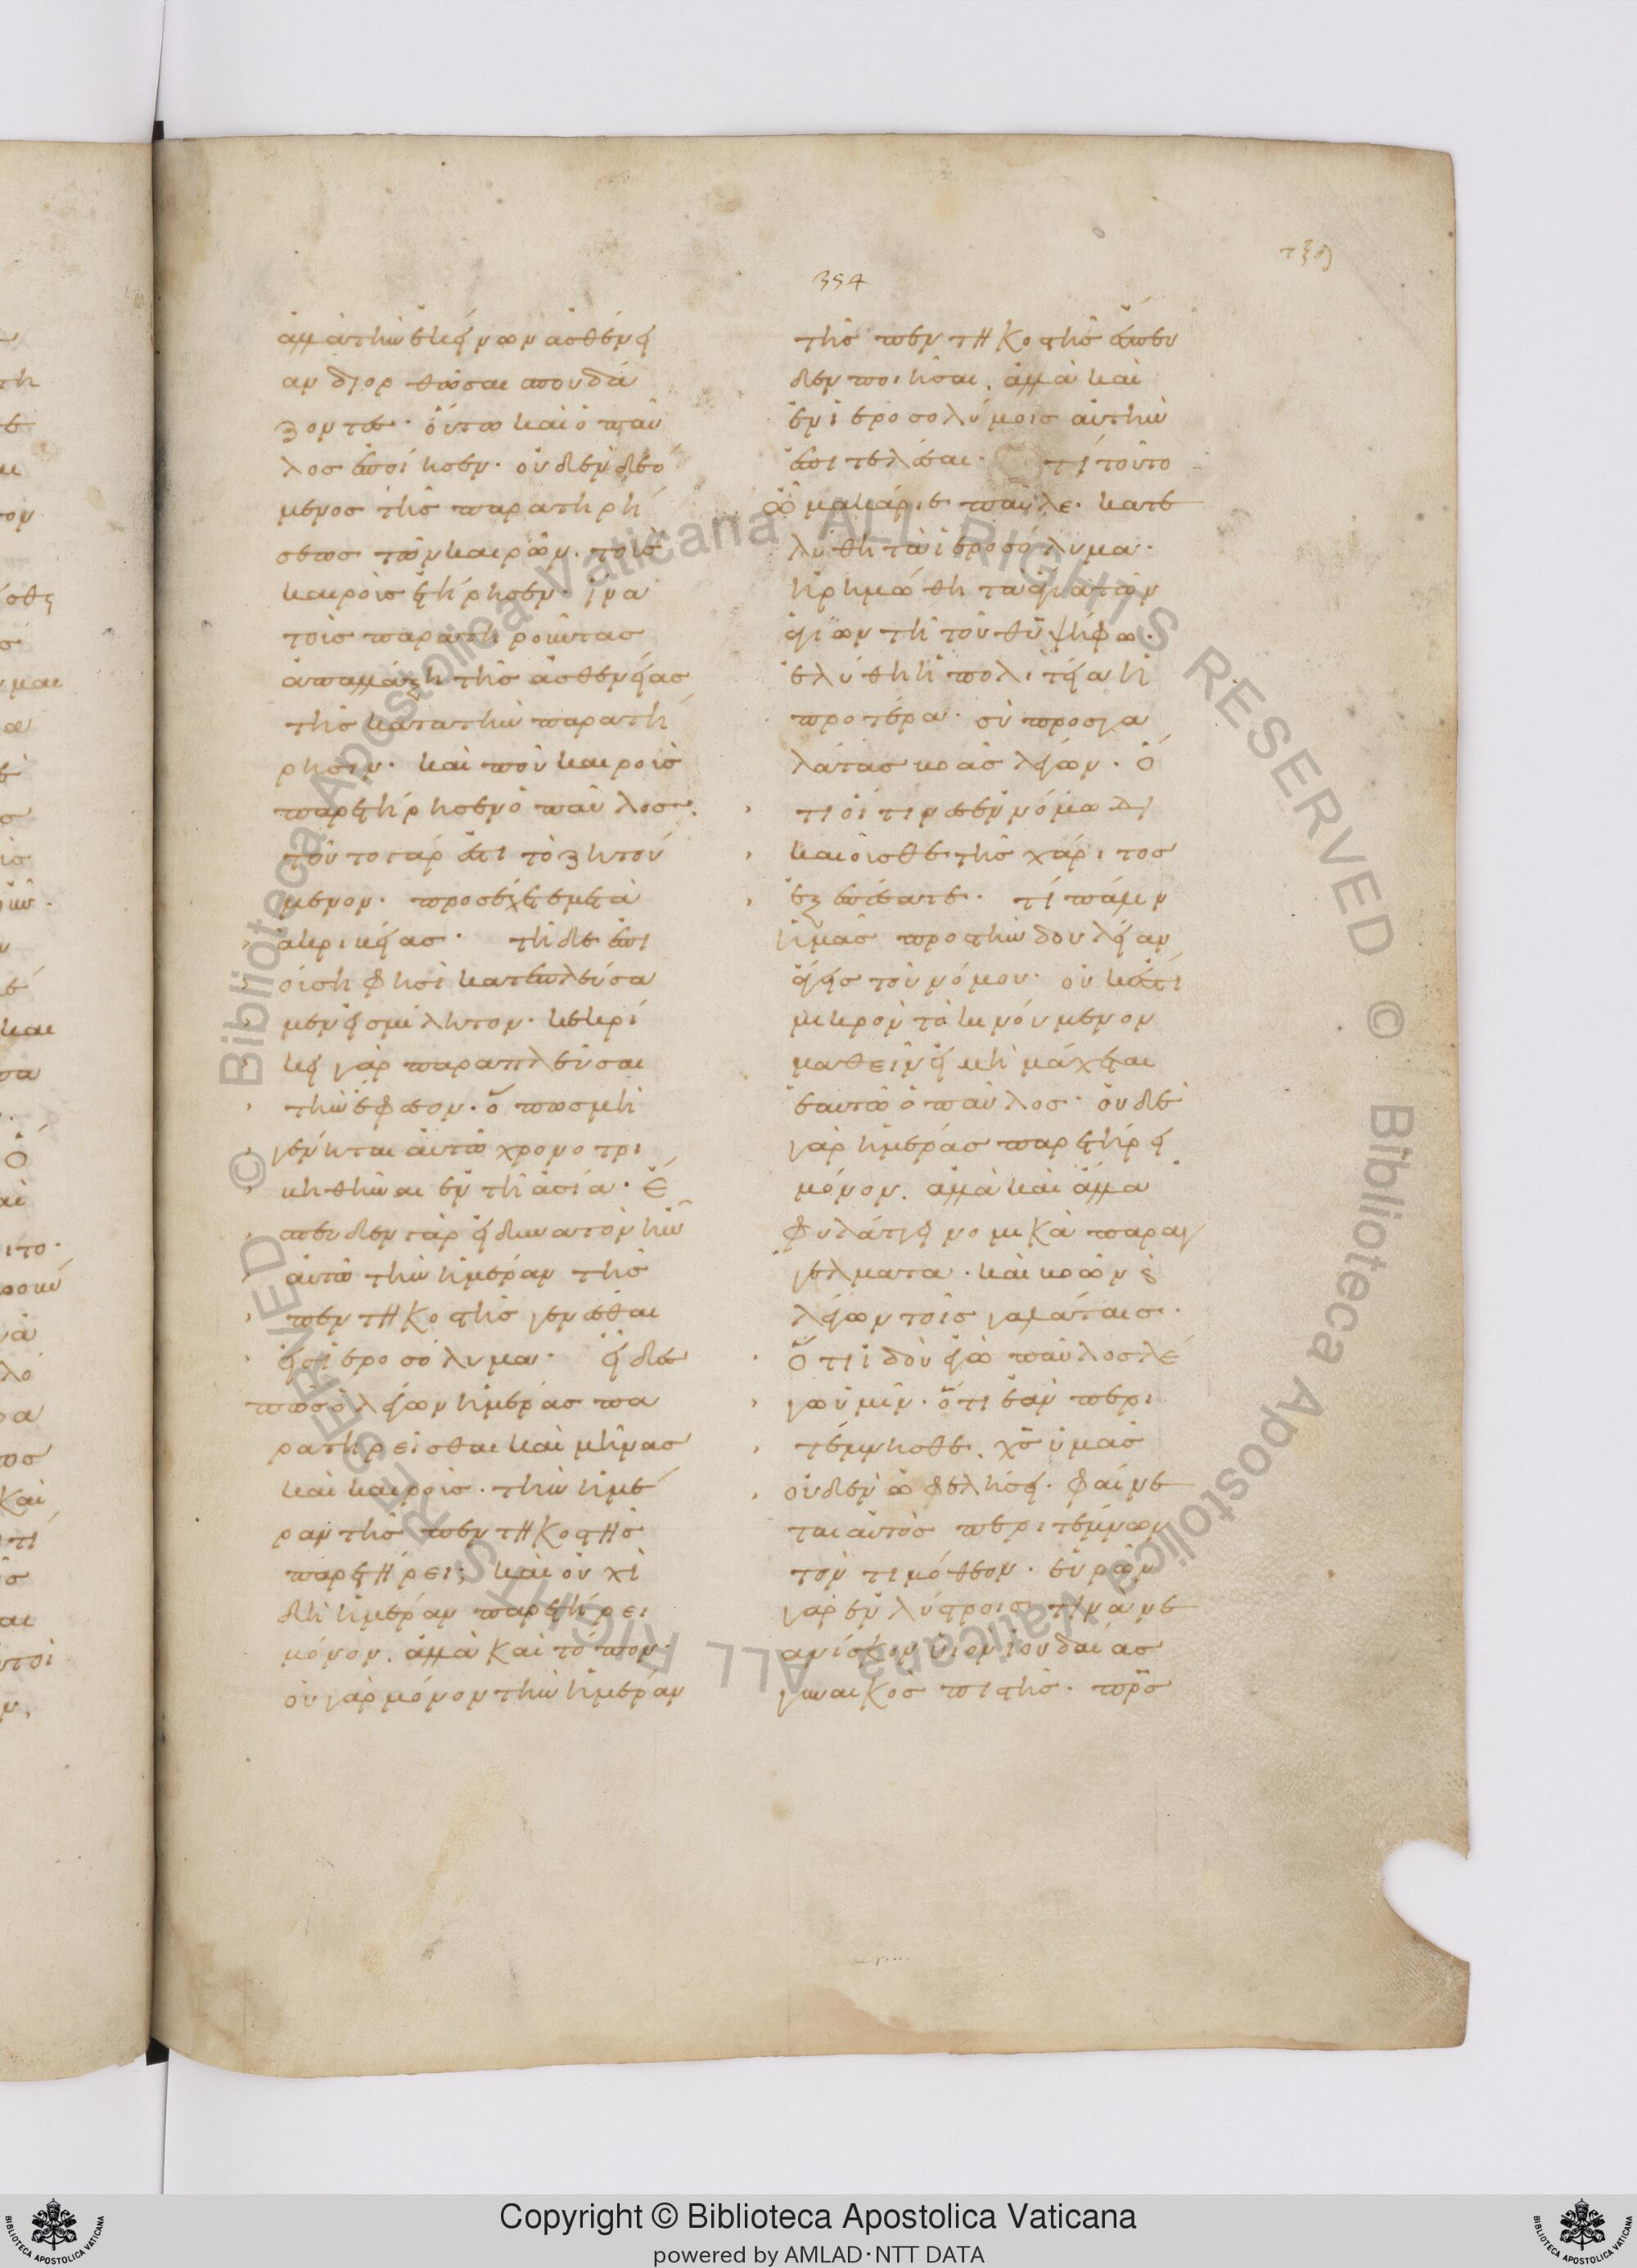 τξδ
354
ἀλλὰ τὴν ἐκείνων ἀσθένει
αν διορθῶσαι σπουδά
ζοντες· οὕτω καὶ ὁ παῦ
λος ἐποίησεν· οὐδὲν δεό
μενος τῆς παρατηρή
σεως τῶν καιρῶν. τοῖς
καιροῖς ἐτήρησεν· ἵνα
τοὺς παρατηροῦντας
ἀπαλλάξη τῆς ἀσθενείας
τῆς κατὰ τὴν παρατή
ρησιν· καὶ ποῦ καιροὺς
παρετήρησεν ὁ παῦλος.
τοῦτο γάρ ἐστι τὸ ζητού
μενον· προσέχετε μετὰ
ἀκριβείας· τῆ δὲ ἐπι
ούση φησὶ κατεπλεύσα
μεν εἰς μίλητον· κεκρί
κει γὰρ παραπλεῦσαι
τὴν ἔφεσον· ὅπως μὴ
γένηται αὐτῶ χρονοτρι
βηθῆναι ἐν τῆ ἀσία· ἔ
σπευδεν γὰρ εἰ δυνατὸν ἦν
αὐτῶ τὴν ἡμέραν τῆς
πεντηκοστῆς γενέσθαι
εἰς ἱεροσόλυμα· εἶδες
πῶς ὁ λέγων ἡμέρας πα
ρατηρεῖσθαι καὶ μῆνας
καὶ καιρούς. τὴν ἡμέ
ραν τῆς πεντηκοστῆς
παρετήρει; καὶ οὐχὶ
δὴ ἡμέραν παρετήρει
μόνον. ἀλλὰ καὶ τόπον·
οὐ γὰρ μόνον τὴν ἡμέραν
τῆς πεντηκοστῆς ἔσπευ
δεν ποιῆσαι. ἀλλὰ καὶ
ἐν ἱεροσολύμοις αὐτὴν
ἐπιτελέσαι· τί τοῦτο
ὦ μακάριε παῦλε· κατε
λύθη τὰ ἱεροσόλυμα·
ἠρημώθη τὰ ἅγια τῶν
ἁγίων τῆ τοῦ θυ ψήφω·
ἐλύθη ἡ πολιτεία ἡ
προτέρα· σὺ πρὸς γα
λάτας βοᾶς λέγων· ὅ
τι οἵτινες ἐν νόμω δι
καιοῦσθε τῆς χάριτος
ἐξεπέσατε· τί πάλιν
ἡμᾶς πρὸς τὴν δουλείαν
ἄγεις τοῦ νόμου· οὐκ ἔστι
μικρὸν τὸ κινούμενον
μαθεῖν εἰ μὴ μάχεται
ἑαυτῶ ὁ παῦλος· οὐδὲ
γὰρ ἡμέρας παρετήρει
μόνον. ἀλλὰ καὶ ἄλλα
φυλάττει νομικὰ παραγ
γέλματα· καὶ βοῶν ϗ
λέγων τοῖς γαλάταις·
ὅτι ἰδοὺ ἐγὼ παῦλος λέ
γω ὑμῖν· ὅτι ἐὰν περι
τέμνησθε. χς ὑμᾶς
οὐδὲν ὠφελήσει· φαίνε
ται αὐτὸς περιτέμνων
τὸν τιμόθεον· εὑρὼν
γὰρ ἐν λύστροις τινὰ νε
ανίσκον υἱὸν ἰουδαίας
γυναικὸς πιστῆς· πρς